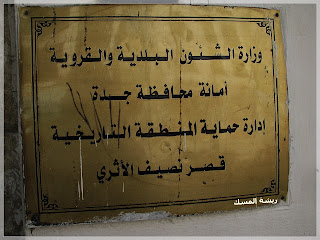 وزارة الشئون البلدية والقروية
أمانة محافظة جدة
إدارة حماية المنطقة التاريخية
قصر نصيف الأثري
ريشة المسك